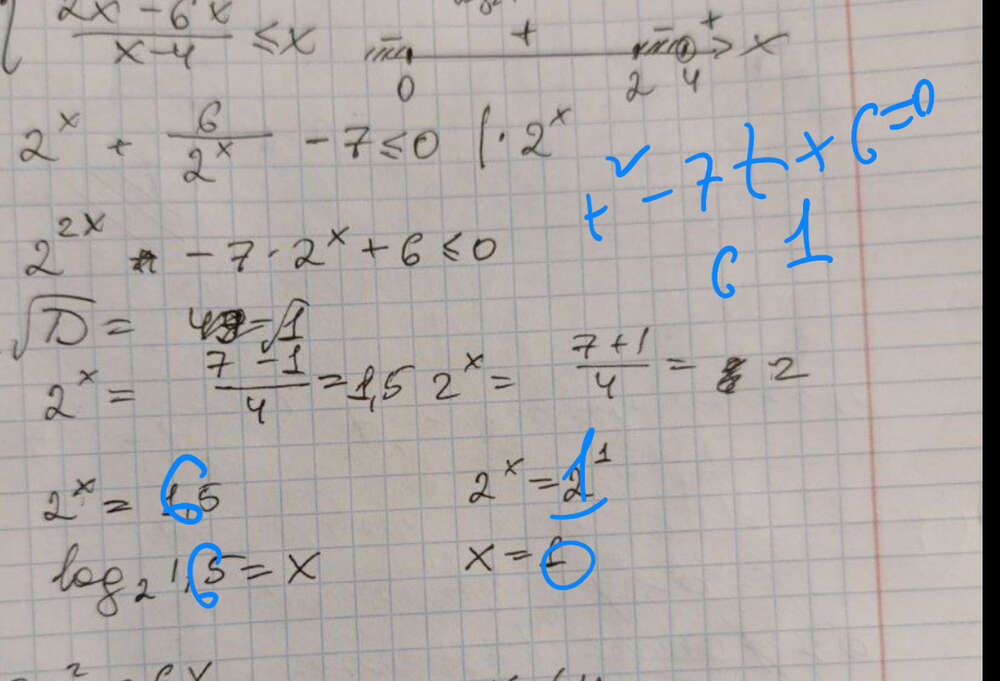 2x - 6x / x-4 ≤ x
- + - + x
0 2 4
2^x + 6/2^x - 7 ≤ 0 | · 2^x
t² - 7t + 6 = 0
6 1
2^2x - 7 · 2^x + 6 ≤ 0
√D = √1
2^x = (7 - 1)/4 = 1,5 2^x = (7 + 1)/4 = 2
2^x = 6 2^x = 1
log₂ 6 = x x = 0